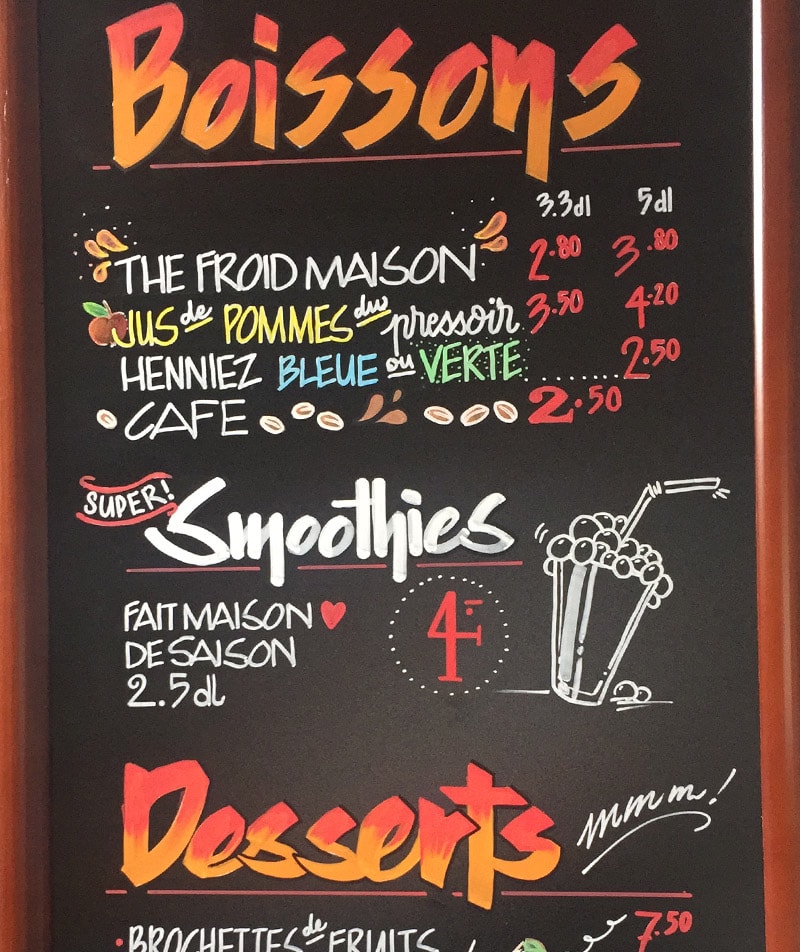 Boissons
3.3dl 5dl
THE FROID MAISON 2.80 3.80
JUS de POMMES du pressoir 3.50 4.20
HENNIEZ BLEUE ou VERTE ...... 2.50
CAFE 2.50
SUPER!
Smoothies
FAIT MAISON
DE SAISON
2.5dl
4.-
Desserts mmm!
• BROCHETTES de FRUITS 7.50